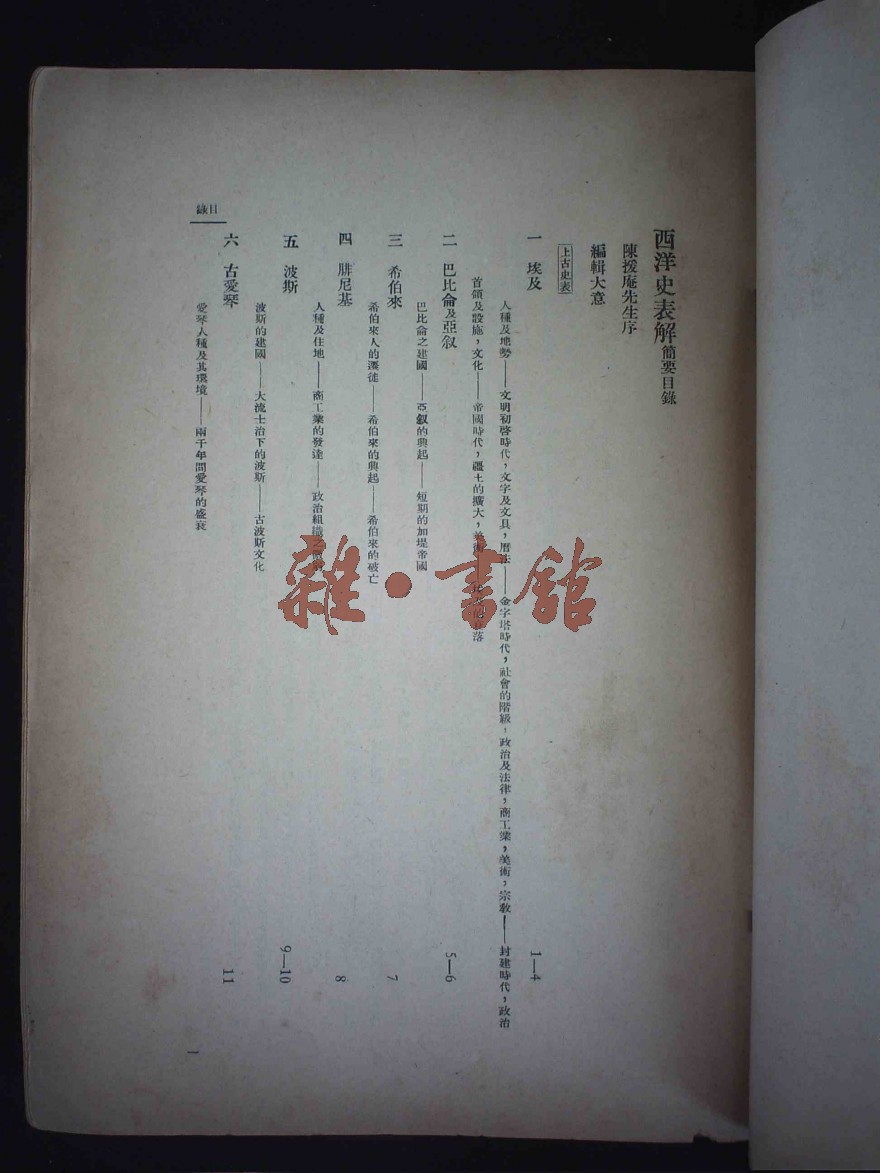 西洋史表解簡要目錄
陳援庵先生序
編輯大意
上古史表
一 埃及 1—4
人種及地勢——文明初啓時代，文字及文具，曆法——金字塔時代，社會的階級，政治及法律，商工業，美術，宗教——封建時代，政治
首領及設施，文化——帝國時代，疆土的擴大，美術 落
二 巴比倫及亞叙 5—6
巴比倫之建國——亞叙的興起——短期的加堤帝國
三 希伯來 7
希伯來人的遷徙——希伯來的興起——希伯來的破亡
四 腓尼基 8
人種及住地——商工業的發達——政治組織
五 波斯 9—10
波斯的建國——大流士治下的波斯——古波斯文化
六 古愛琴 11
愛琴人種及其環境——兩千年間愛琴的盛衰
目錄
一
雜·書館